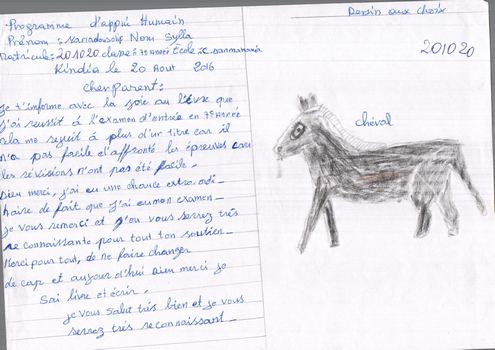 Programme d'appui Humain
Prénom: Mariadousouf Nom Sylla
Matricule: 201020 classe: 7e Année Ecole: C. sanmamania
Kindia le 20 Aout 2016
Cher Parent:
Je t'informe avec la joie au lèvre que
j'ai reussit à l'examen d'entrée en 7e Année
cela me rejuit à plus d'un titre car il
n'a pas facile d'affronté les épreuves car
les révisions n'ont pas été facile.
Dieu merci, j'ai eu une chance extra-ordi-
naire de fait que j'ai eu mon examen
je vous remerci et j'en vous serrez très
reconnaissante pour tout ton soutien
Merci pour tout, de ne faire changer
de cap et aujour d'hui Dieu merci je
Sai livre et écrir.
je vous Salut très bien et je vous
serrez très reconnaissant
Dessin aux choix
201020
cheval